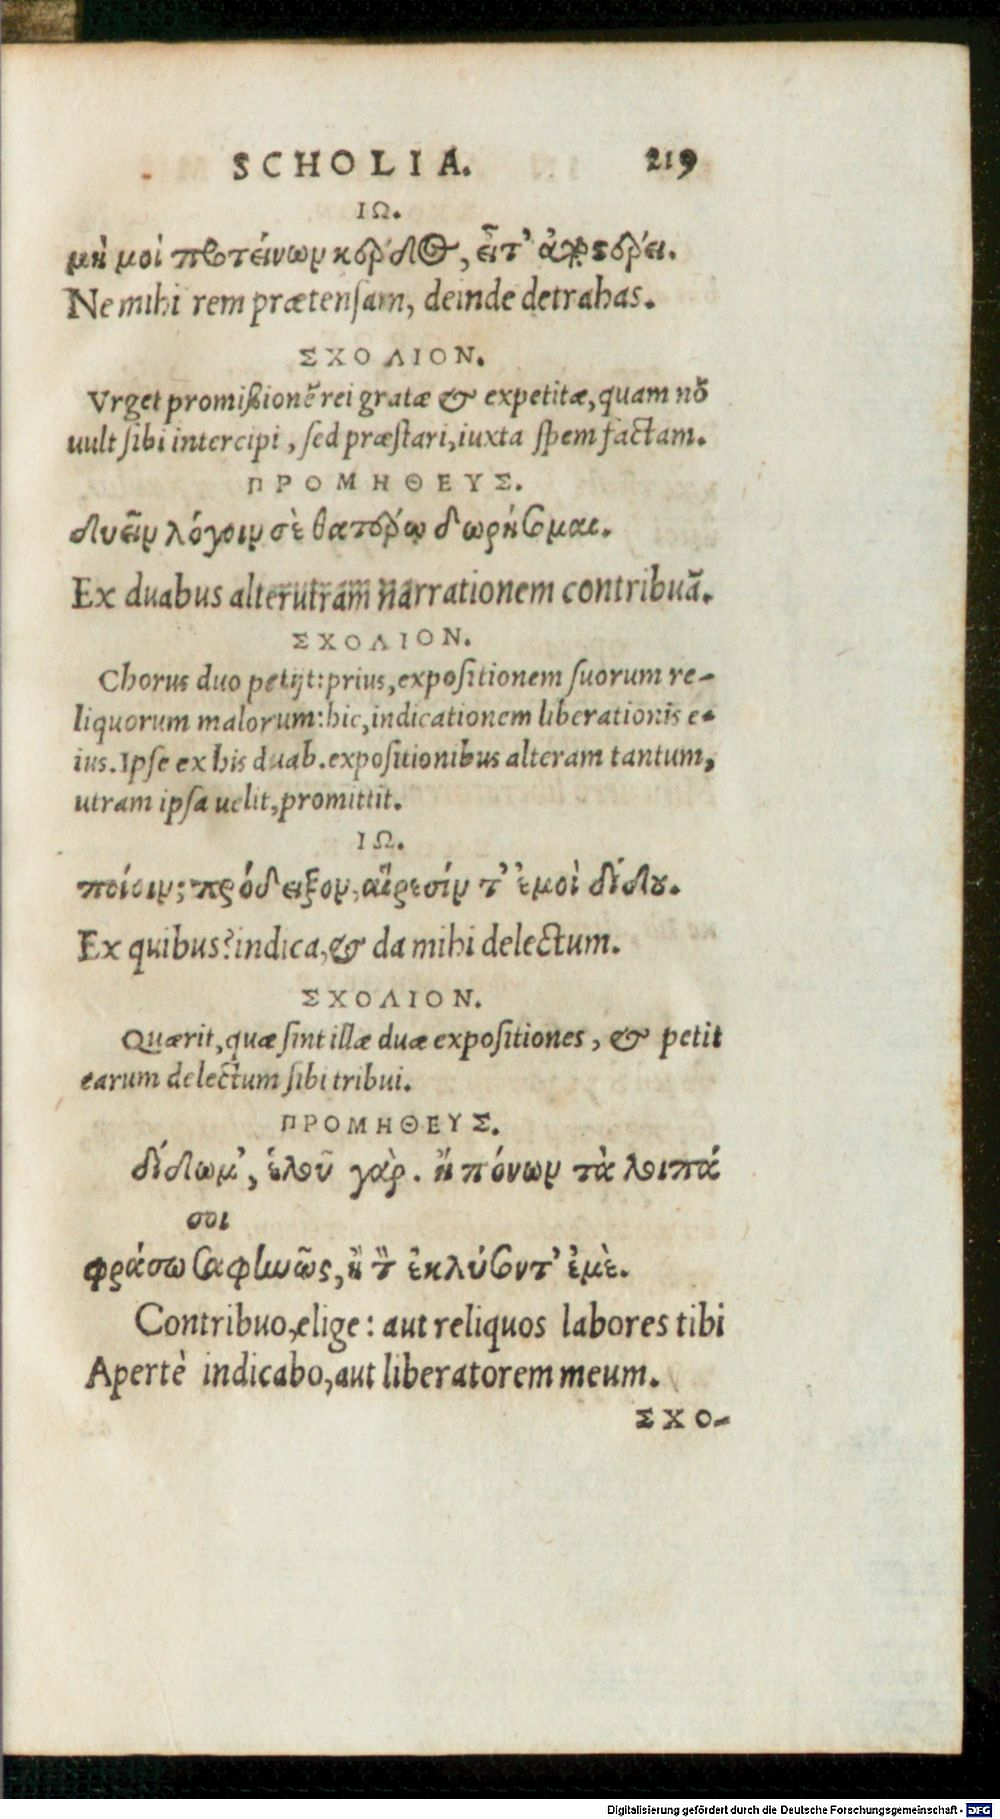 SCHOLIA. 219
ΙΩ.
μή μοι προτείνων κέρδος, εἶτ' ἀποστέρει.
Ne mihi rem prætensam, deinde detrahas.
ΣΧΟΛΙΟΝ.
Vrget promißionē rei gratæ & expetitæ, quam nō
uult sibi intercipi, sed præstari, iuxta spem factam.
ΠΡΟΜΗΘΕΥΣ.
δυεῖν λόγοιν σὲ θατέρῳ δωρήσομαι.
Ex duabus alterutram narrationem contribuā.
ΣΧΟΛΙΟΝ.
Chorus duo petijt: prius, expositionem suorum re-
liquorum malorum: hic, indicationem liberationis e-
ius. Ipse ex his duab. expositionibus alteram tantum,
utram ipsa uelit, promittit.
ΙΩ.
ποίοιν; πρόδειξον, αἵρεσίν τ' ἐμοὶ δίδου.
Ex quibus? indica, & da mihi delectum.
ΣΧΟΛΙΟΝ.
Quærit, quæ sint illæ duæ expositiones, & petit
earum delectum sibi tribui.
ΠΡΟΜΗΘΕΥΣ.
δίδωμ', ἑλοῦ γὰρ. ἢ πόνων τὰ λοιπά
σοι
φράσω σαφηνῶς, ἢ τ̀ ἐκλύσοντ' ἐμὲ.
Contribuo, elige: aut reliquos labores tibi
Apertè indicabo, aut liberatorem meum.
ΣΧΟ-
Digitalisierung gefördert durch die Deutsche Forschungsgemeinschaft - DFG